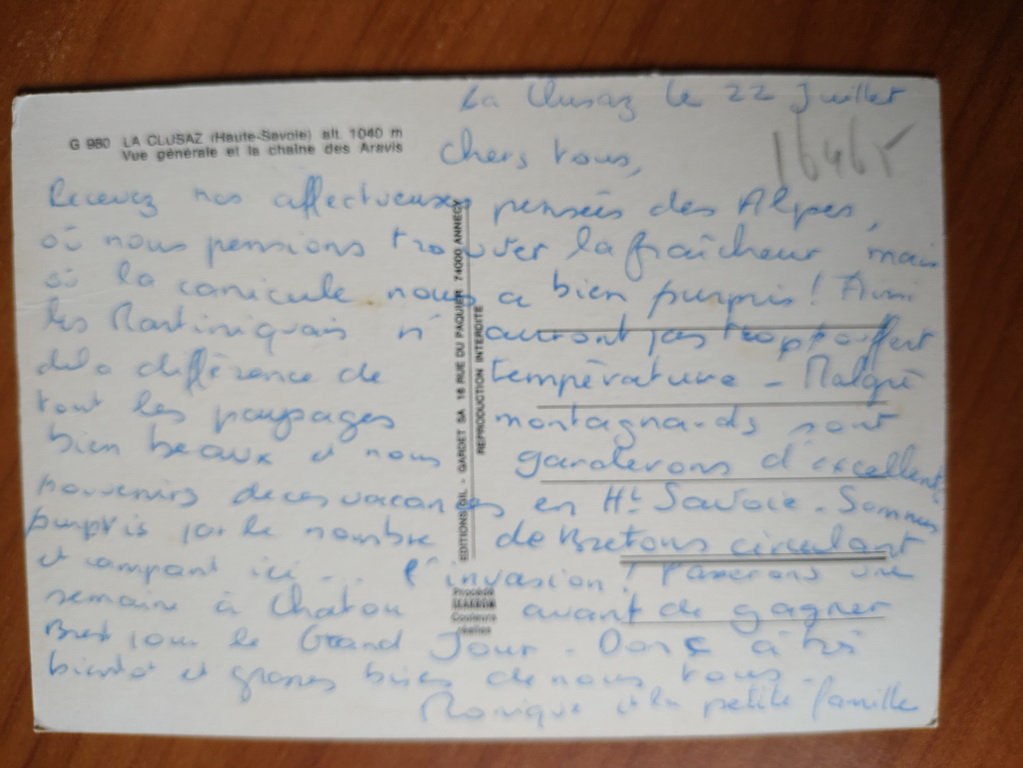 La Clusaz le 22 Juillet
G 980 LA CLUSAZ (Haute-Savoie) alt. 1040 m
Vue générale et la chaîne des Aravis
16465
Chers tous,
Recevez nos affectueuses pensées des Alpes,
où nous pensions trouver la fraîcheur mais
où la canicule nous a bien surpris! Ainsi
les Martiniquais n'auront pas trop souffert
de la différence de température - Malgré
tout les paysages montagnards sont
bien beaux et nous garderons d'excellents
souvenirs de ces vacances en Hte Savoie. Sommes
surpris par le nombre de Bretons circulant
et campant ici... l'invasion! Passerons une
semaine à Chatou avant de gagner
Brest pour le Grand Jour - Donc à très
bientôt et grosses bises de nous tous.
Monique et la petite famille
EDITIONS GIL - GARDET SA 18 RUE DU PAQUIER 74000 ANNECY
REPRODUCTION INTERDITE
Procédé
Couleurs
réelles